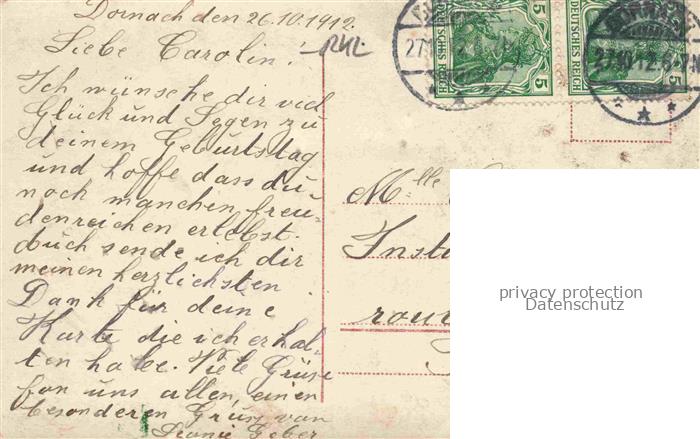 Dornach den 26.10.1912.
Liebe Carolin!
Ich wünsche dir viel
Glück und Segen zu
deinem Geburtstag
und hoffe dass du
noch manchen freu-
denreichen erlebst.
Auch sende ich dir
meinen herzlichsten
Dank für deine
Karte die ich erhal-
ten habe. Viele Grüse
fon uns allen, einen
besonderen Gruss von
Leonie Geber
5
DEUTSCHES REICH
5
DEUTSCHES REICH
DORNACH
27.10.12.6-7.N
Mlle
privacy protection
Datenschutz